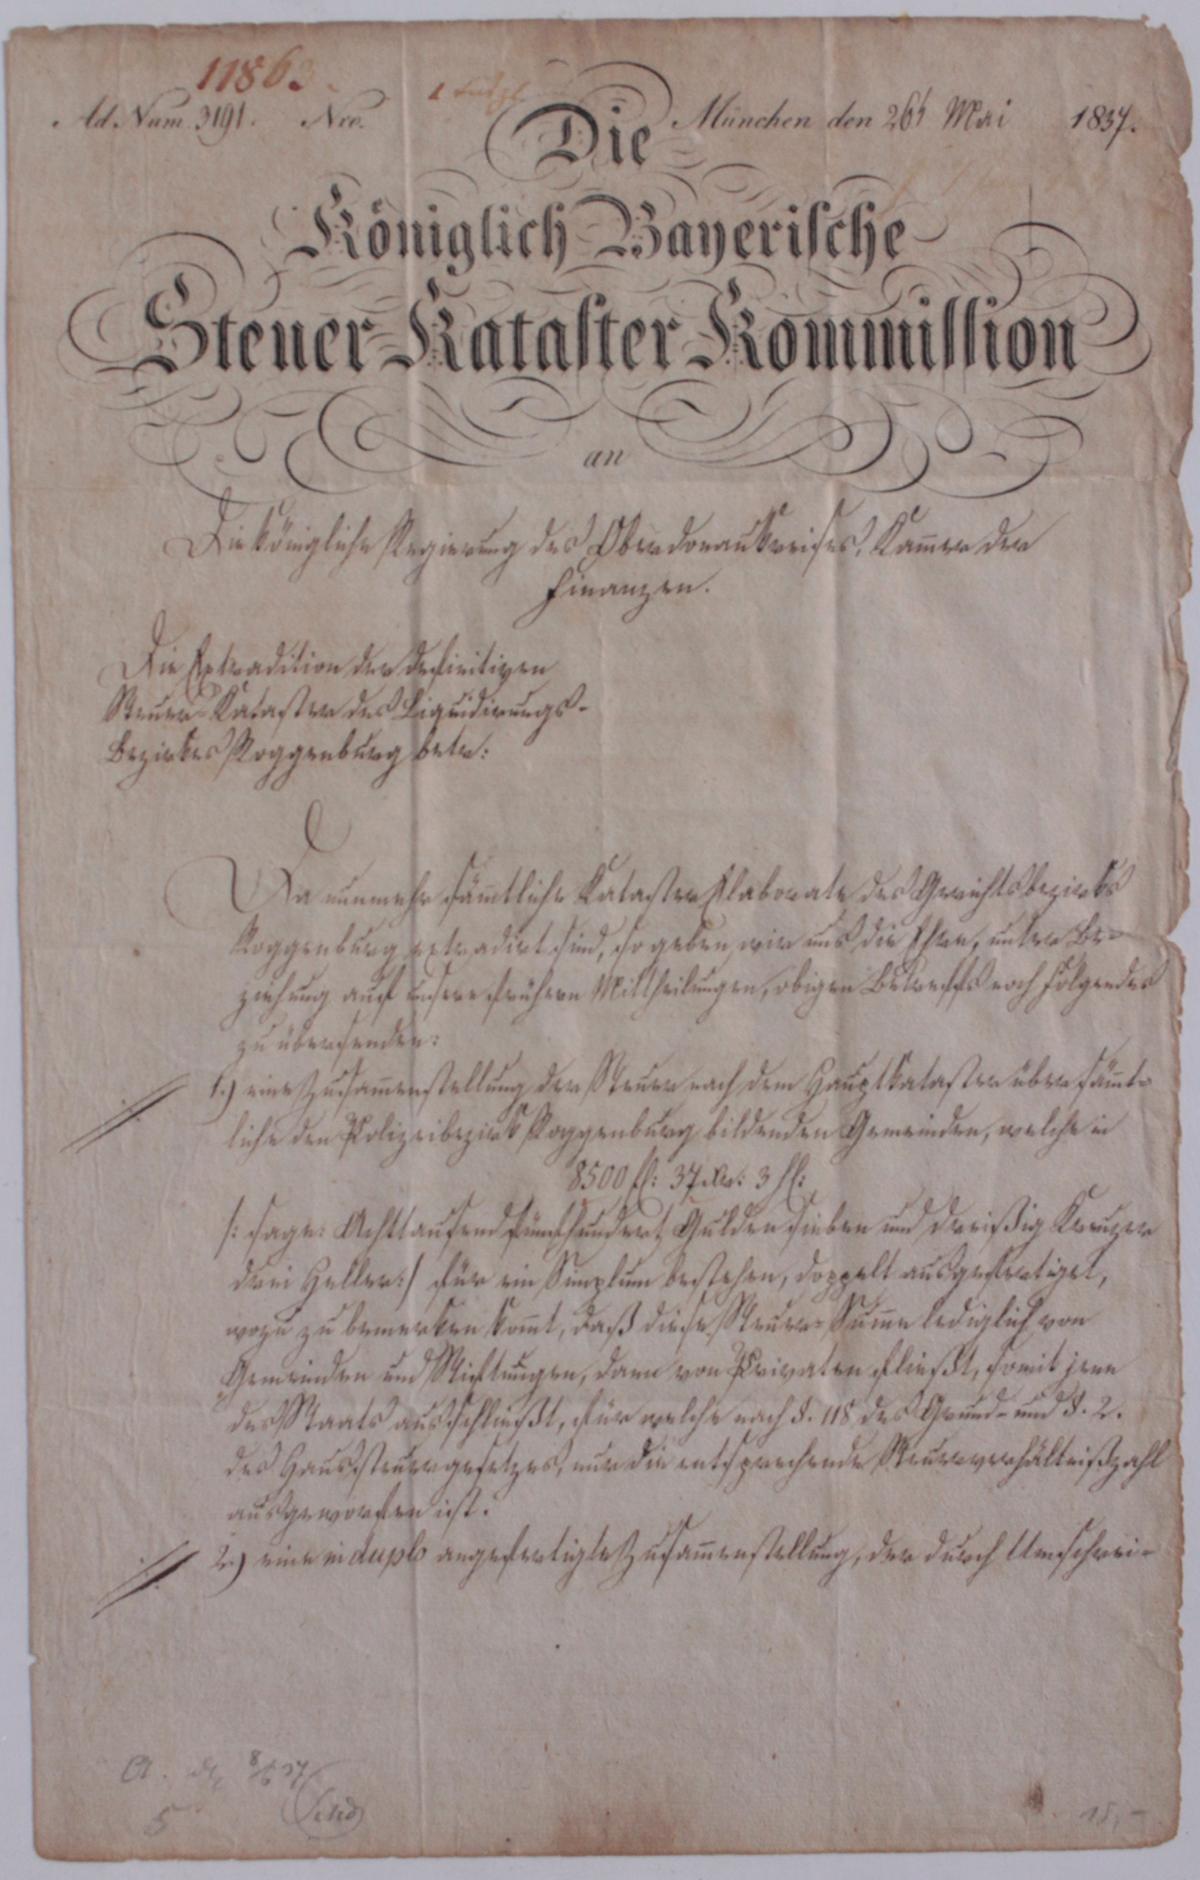 11863.
Ad Num. 3191. Nro.
München den 26t Mai 1837.
Die
Königlich Bayerische
Steuer-Kataster Kommission
an
Die königliche Regierung des Oberdonaukreises, Kam̅er der
Finanzen.
Die Extradition der definitiven
Steuer-Kataster des Liquidirungs-
Bezirkes Roggenburg betr:
Da nunmehr säm̅tliche Kataster Elaborate des Gerichtsbezirks
Roggenburg extradirt sind, so geben wir uns die Ehre, unter Be-
ziehung auf unsere frühern Mittheilungen, obigen Betreffs noch Folgendes
zu übersenden:
1.) eine Zusam̅enstellung der Steuer nach dem Hauptkataster über säm̅t-
liche den Polizeibezirk Roggenburg bildenden Gemeinden, welche in
8500 fl: 37 kr: 3 hl:
/: sage: Achttausend fünfhundert Gulden sieben und dreißig Kreuzer
drei Heller :/ für ein Simplum bestehen, doppelt ausgefertiget,
wozu zu bemerken kom̅t, daß diese Steuer-Sum̅e lediglich von
Gemeinden und Stiftungen, dann von Privaten fließt, somit jene
des Staats ausschließt, für welche nach §. 118 des Grund- und §. 2.
des Haussteuergesetzes, nur die entsprechende Steuerverhältnißzahl
ausgeworfen ist.
2.) eine in duplo angefertigte Zusam̅enstellung, der durch Umschrei-
15,-